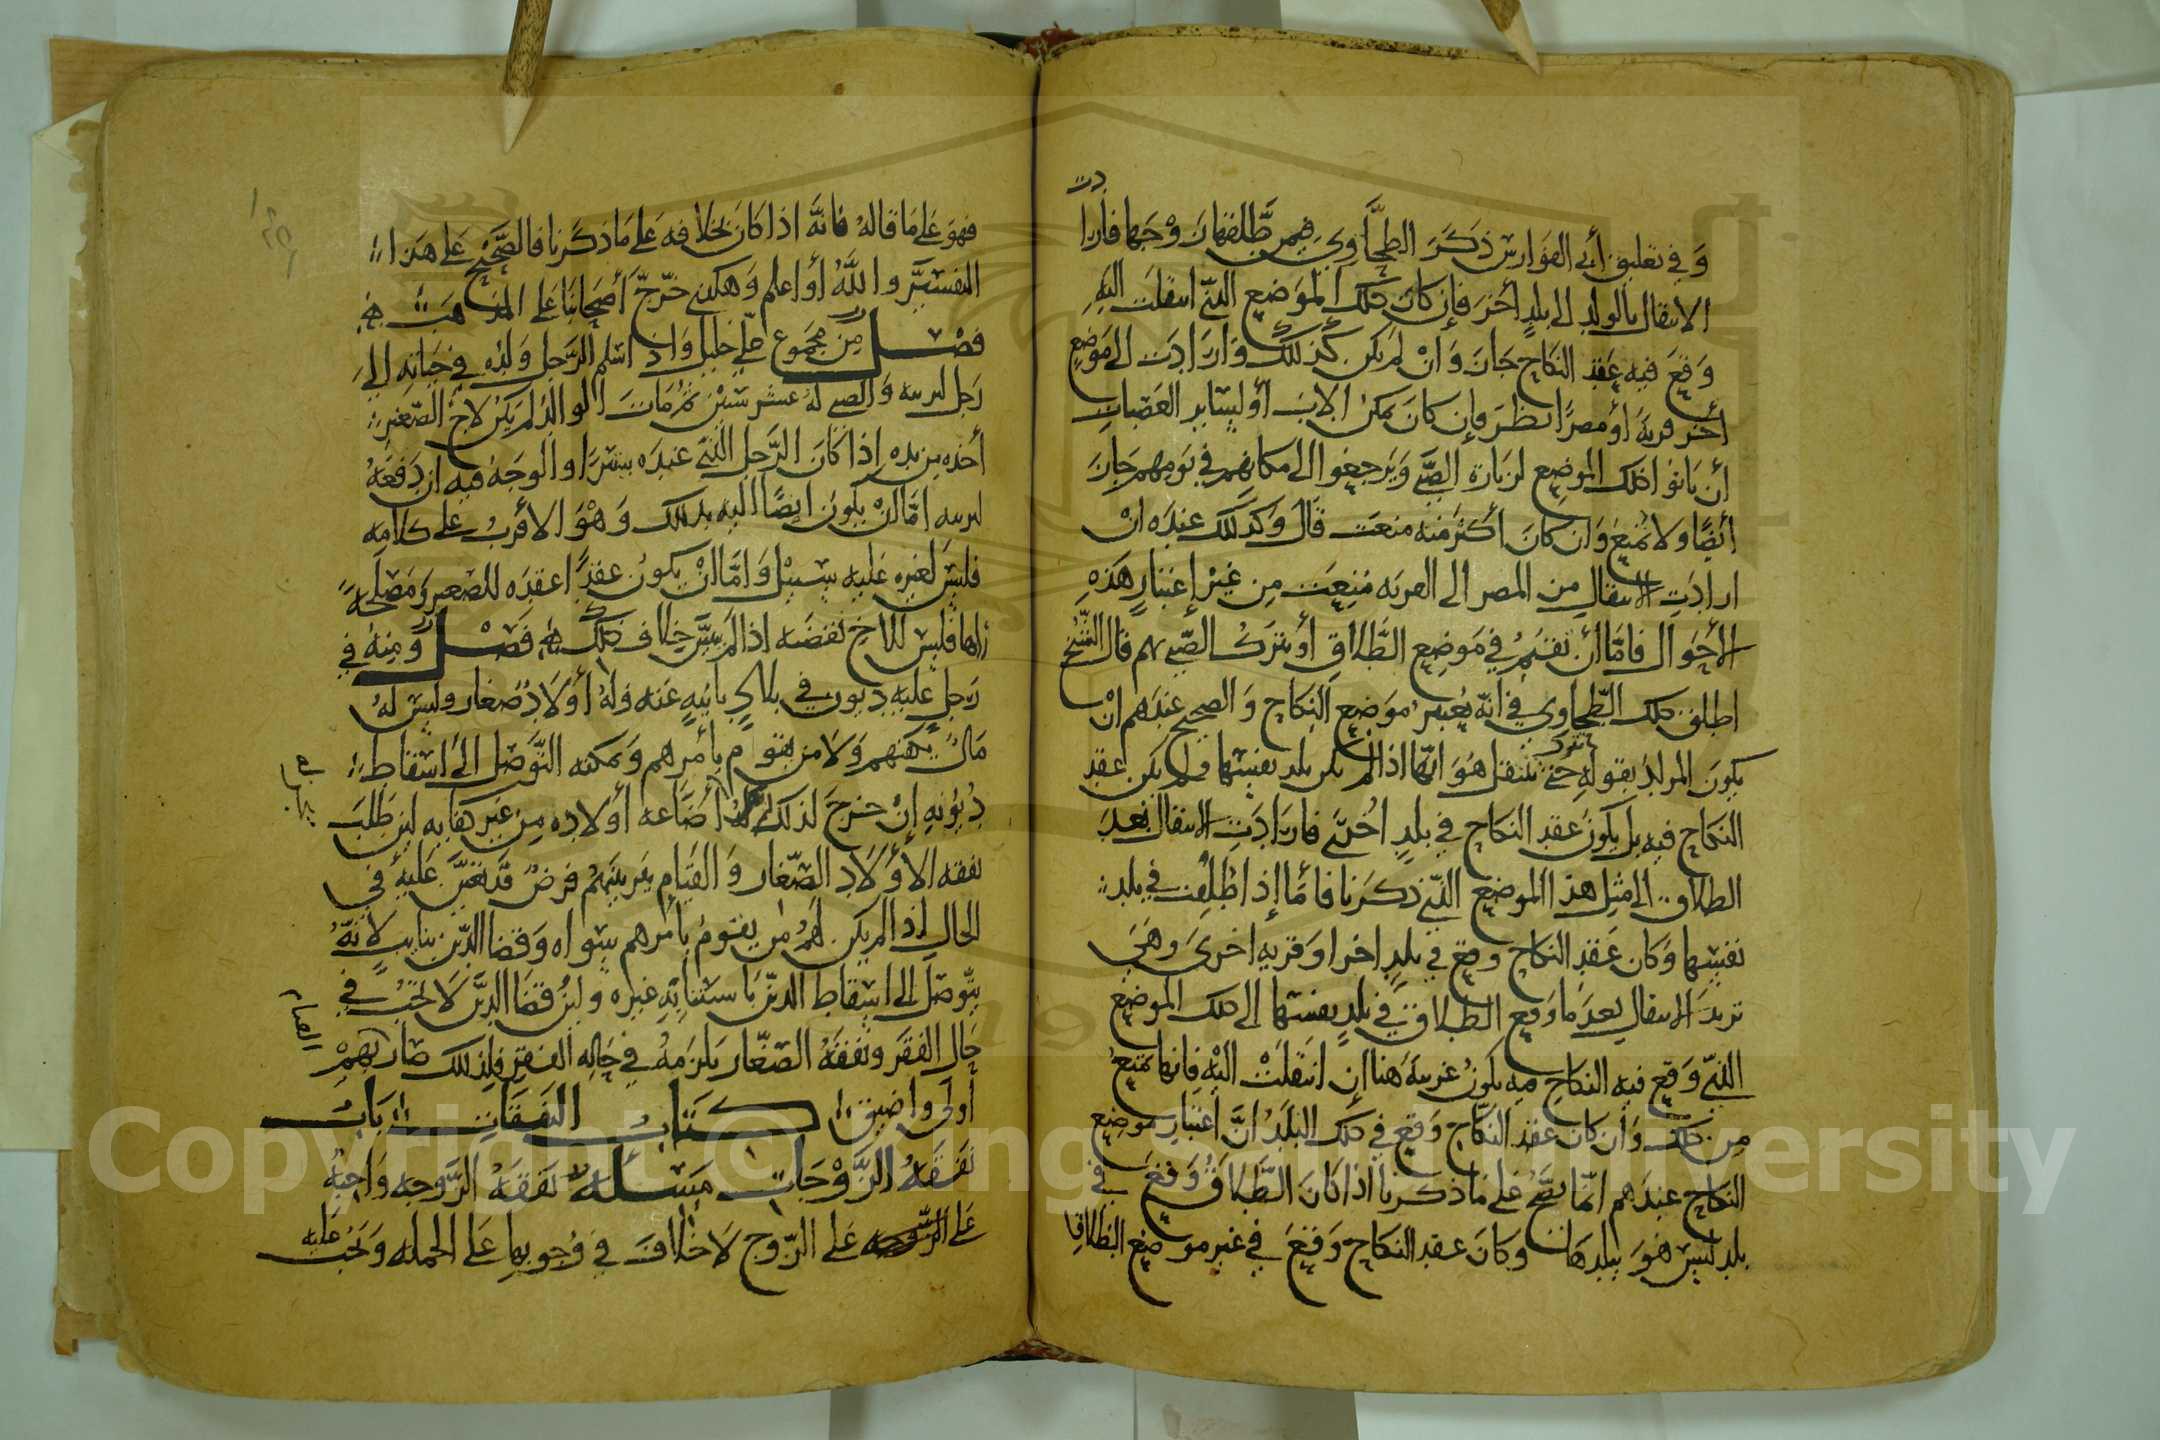 وَفي تعليق أبي الفوارس ذكَرَ الطحَّاوي فيمن طلقها زوجها فأرادت
الانتقال بالولد إلى بلدٍ أخرَ فإن كان ذلك الموَضع الذي انتقلت اليه
وَقعَ فيه عقد النكاح جازَ وَانْ لم يكن كذلك وَارَادت الى موضع
أخر قرية أو مصرًا نظرَ فإن كانَ يمكن الابَ أو لسائر العصبات
أن ياتوا ذلك الموضع لزيارة الصَّبي وَيرجعوا الى مكانهم في يومهم جازَ
أيضًا ولا تمنع وَان كانَ أكثر منه منعت قالَ وكذلك عندَه انْ
ارادَتِ الانتقال من المصر الى القريه مُنِعت مِن غيْر إعتبار هَذهِ
الأحوال فامَّا أن تقيمُ في مَوضع الطَّلاقِ أو تتركُ الصَّبي لهم قال الشيخ
اطلق ذلك الطّحاوي في انّه يُعتبر موَضع النِكاح وَالصحيح عندهم انْ
يكونَ المراد بقوله حتى تنتقل هُوَ انّما اذا لم يكن بلد نفيسها ولم يكن عقد
النكاح فيه بل يكونُ عقد النكاح في بلدٍ اخُرى فارَادَتِ الانتقال بعد
الطلاق الى مثل هذا الموضع الذّي ذكرَنا فامَّا إذا طُلِقت في بلد
نفيسها وَكان عَقد النكاح وقع في بلدٍ اخرا وَقريه اخرىَ وَهيَ
تريدَ الانتقال بعدَ ما وَقع الطلاق في بلد نفيسها إلى ذلك الموضع
الذّي وَقع فيه النكاح فيه يكونُ غريبة هنا إن انتقلتْ اليْه فانها تمنع
مِن ذلك وَأن كان عقد النكاح وَقع في ذلك البلَدُ انَّ اعتبار موضع
النكاح عندَهم انمّا يصَحُّ على مَا ذكرنا اذا كانَ الطَّلاقُ وَقعَ في
بلد ليسَ هوَ ببلدهَا وَكانَ عقد النكاح وَقعَ في غير موَضع الطَّلاق
فهوَ على مَا قالهُ فانَّه اذا كانَ بخلافه على مَا ذكرَنا فالصَّحيح على هَذا
التفسيَّر والله أو اعلم وَهكذى خرّجَ أصحابنا على المذهب
فصْل مِن مجَموع علي خليل وَاذا اسْلم الرَّجل وَلده في حيَاته إلى
رَجل ليربيه وَالصبي لهُ عشر سنين ثمّ مَات الوالدُ لم يكن لاخ الصّغير
أخذه من يده اذا كانَ الرَّجل الذّي عندَه ستيرًا والوجَهُ فيه ان دَفعهُ
ليربيه امَّا انْ يكون ايضًا اليه بذلك وَهْوَ الأقربُ على كلامه
فليسَ لغيره عليه سبيل وَامَّا انْ يكونُ عقدًا عقدَه للصغير وَمصلحَة
لها فليسَ للاخ نقضه اذا لم يتبيَّن خلاف ذلك فَصْل وَمنهُ في
رَجلٍ عليه ديون في بلاٍد نائيةٍ عنه وَلهُ أوْلادٌ صغار وليسَ لهُ
مَالٌ يكفيهم وَلا مَن يقوم بأمرهم وَيمكنه التّوَصل الى اسقاط
ديُونه إنْ خرجَ لذلك أضَاعه أولاده مِن غير كفايه لين طَلبَ
نفقه الأوَلاد الصّغار وَالقيَام بتربيتهمُ فرضٌ قد تعيّنَ عليهُ في
الحال إذا لم يكن لهمُ من يقومُ بأمرهم سِواه وَقضا الدّين بنايب لانّهُ
يتوصَل إلى اسقاط الدّين باستنابَةِ غيره وليْن قضا الديْن لا يجبُ في
حال الفقر ونفقهُ الصّغار يلزمهُ في حالِهِ الفقر فلِذلك صَار بهمْ
أولى وَاضيق كتاب النفقاتِ باب
نفقهُ الزَّوْجَات مَسئله نَفقهُ الزَّوجه وَاجبهُ
عَلى الزّوج لاَ خلافَ في وُجوبها على الجمله وَيجُب عليه
Copyright © King Saud University